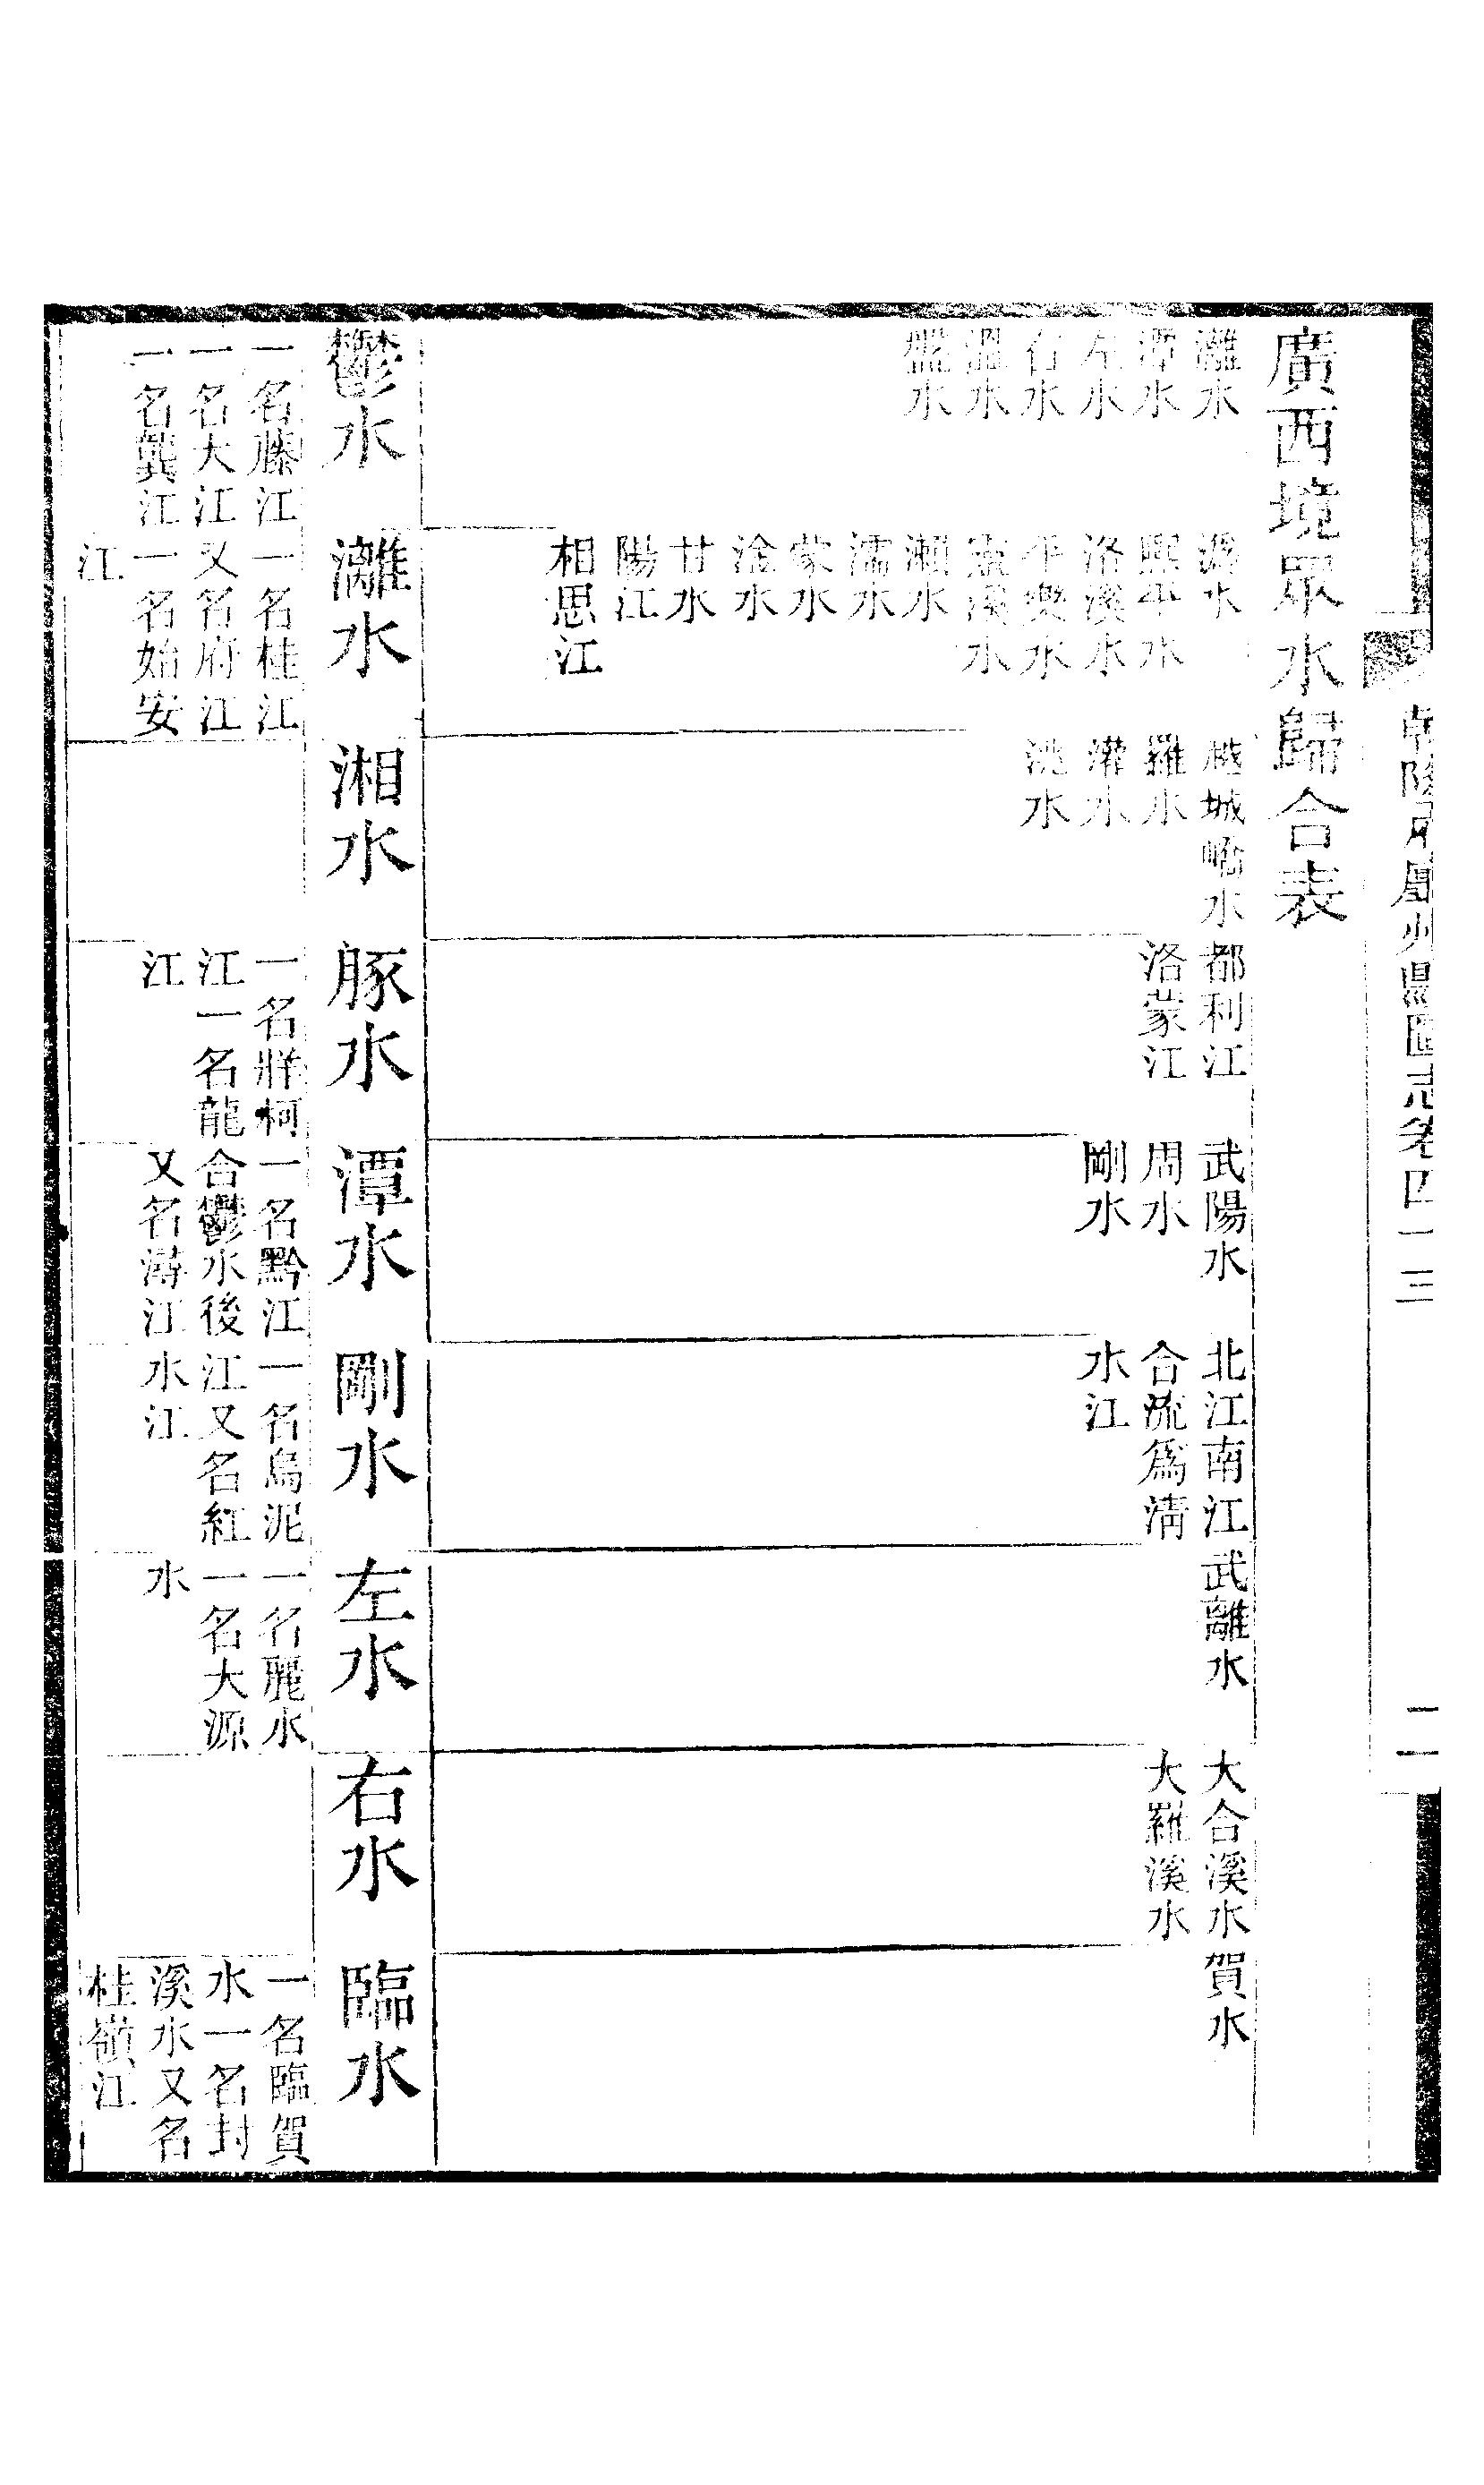 乾隆府廳州縣圖志卷四十三
二
廣西境眾水歸合表
灕水
潭水
左水
右水
溫水
盤水
鬱水
一名藤江
一名大江
一名龔江
漓水
熙平水
洛溪水
平樂水
靈溪水
瀨水
濡水
蒙水
淦水
甘水
陽江
相思江
灕水
一名桂江
又名府江
一名始安
江
越城嶠水
羅水
灌水
洮水
湘水
都利江
洛蒙江
豚水
一名牂柯
江一名龍
江
武陽水
周水
剛水
潭水
一名黔江
合鬱水後
又名潯江
北江南江
合流爲淸
水江
剛水
一名烏泥
江又名紅
水江
武離水
左水
一名麗水
一名大源
水
大合溪水
大羅溪水
右水
賀水
臨水
一名臨賀
水一名封
溪水又名
桂嶺江